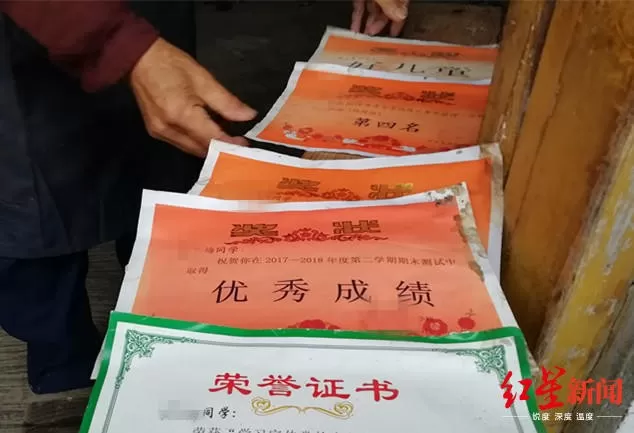 好儿童
奖状
第四名
奖状
奖状
同学
祝贺你在2017—2018年度第二学期期末测试中
取得
优秀成绩
荣誉证书
同学：
红星新闻
锐度 深度 温度